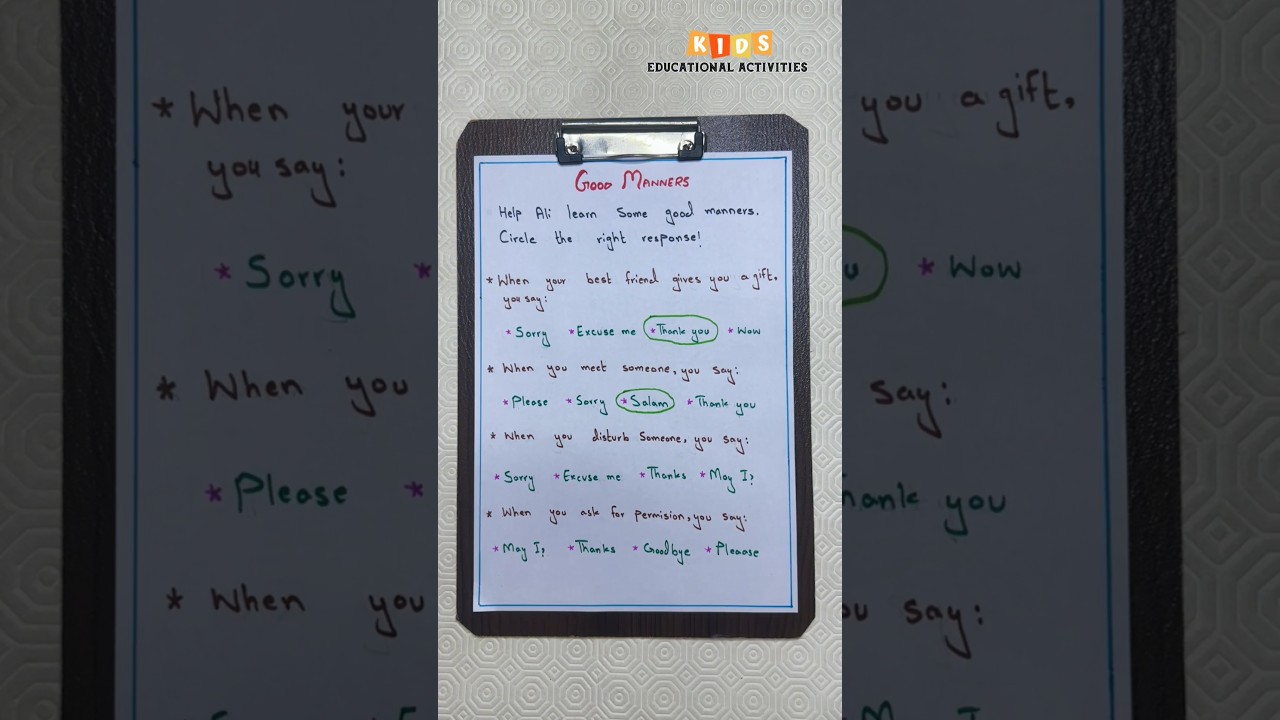 KIDS
EDUCATIONAL ACTIVITIES
GOOD MANNERS
Help Ali learn Some good manners.
Circle the right response!
* When your best friend gives you a gift,
you say:
* Sorry * Excuse me * Thank you * Wow
* When you meet someone, you say:
* Please * Sorry * Salam * Thank you
* When you disturb Someone, you say:
* Sorry * Excuse me * Thanks * May I?
* When you ask for permision, you say:
* May I? * Thanks * Goodbye * Pleaase